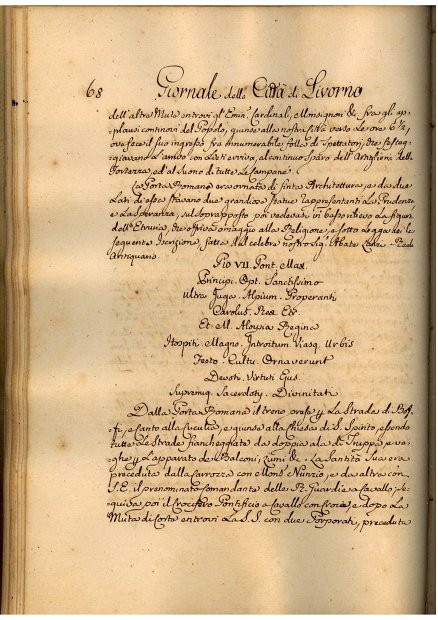 68 Giornale della Città di Livorno
dell'altre Mute entrovi gl'Emin. Cardinali, e Monsignori &. fra gli ap-
plausi continovi del Popolo, giunse alla nostra Città verso le ore 6 ½,
ove fece il suo ingresso fra innumerabile folla di Spettatori, che
gravano l'arrivo, al continuo sparo dell'Artiglieria della
Fortezza, ed al suono di tutte le Campane.
La Porta Romana era ornata di finta Architettura, e da due
Lati di essa stavano due grandiose statue rappresentanti la Prudenza
e la Speranza, sul Soprapposto poi vedevasi in basso rilievo la figura
dell'Etruria, che offriva omaggio alla Religione, e sotto leggevasi la
seguente Iscrizione fatta dal celebre nostro Sig. Abate
Antiquario
Pio VII. Pont. Max.
Principi. Opt. Sanctissimo
Ultra Juga. Alpium. Properanti
Carolus. Rex. Etr.
Et. M. Aloysia Regina
Hospiti. Magno. Introitum. Viasq. Urbis
Festo. Cultu. Ornaverunt
Devoti. Virtuti Ejus.
Supremiq. Sacerdotij. Divinitati
Dalla Porta Romana il treno prese p. la Strada di
fi, e santo alla, e giunse alla Chiesa di S. Spirito, essendo
tutte le Strade fiancheggiate da doppia ala di Truppe e va-
ghe p. l'apparato de Balconi, Lumi &. La Santità Sua era
preceduta dalla Carrozza con Mons. Nunzio, e da altra con
S.E. il prenominato Comandante delle R. Guardie a Cavallo; se-
guiva poi il Crocifero Pontificio a Cavallo con Croce, e dopo la
Muta di Corte entrovi la S.S. con due Porporati, preceduta